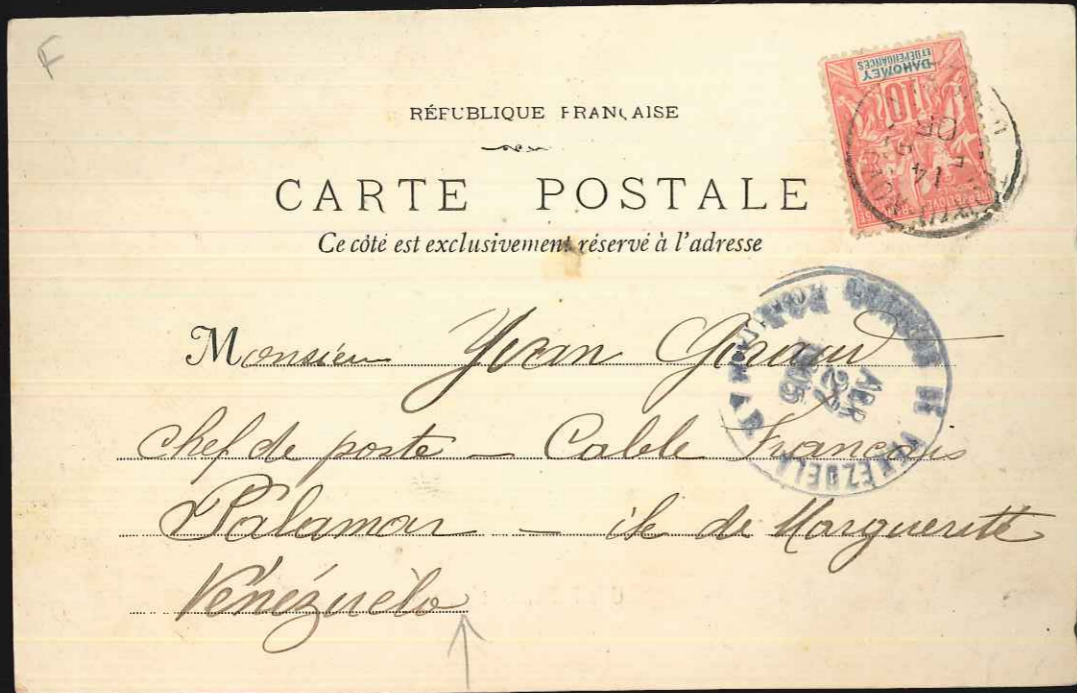 F
RÉPUBLIQUE FRANÇAISE
CARTE POSTALE
Ce côté est exclusivement réservé à l'adresse
DAHOMEY
ET DÉPENDANCES
10
14
Monsieur Yvan Giraud
chef de poste — Cable Français
Palamar — ile de Marguerite
Vénézuéla
CORREOS DE VENEZUELA
ABR
27
1905